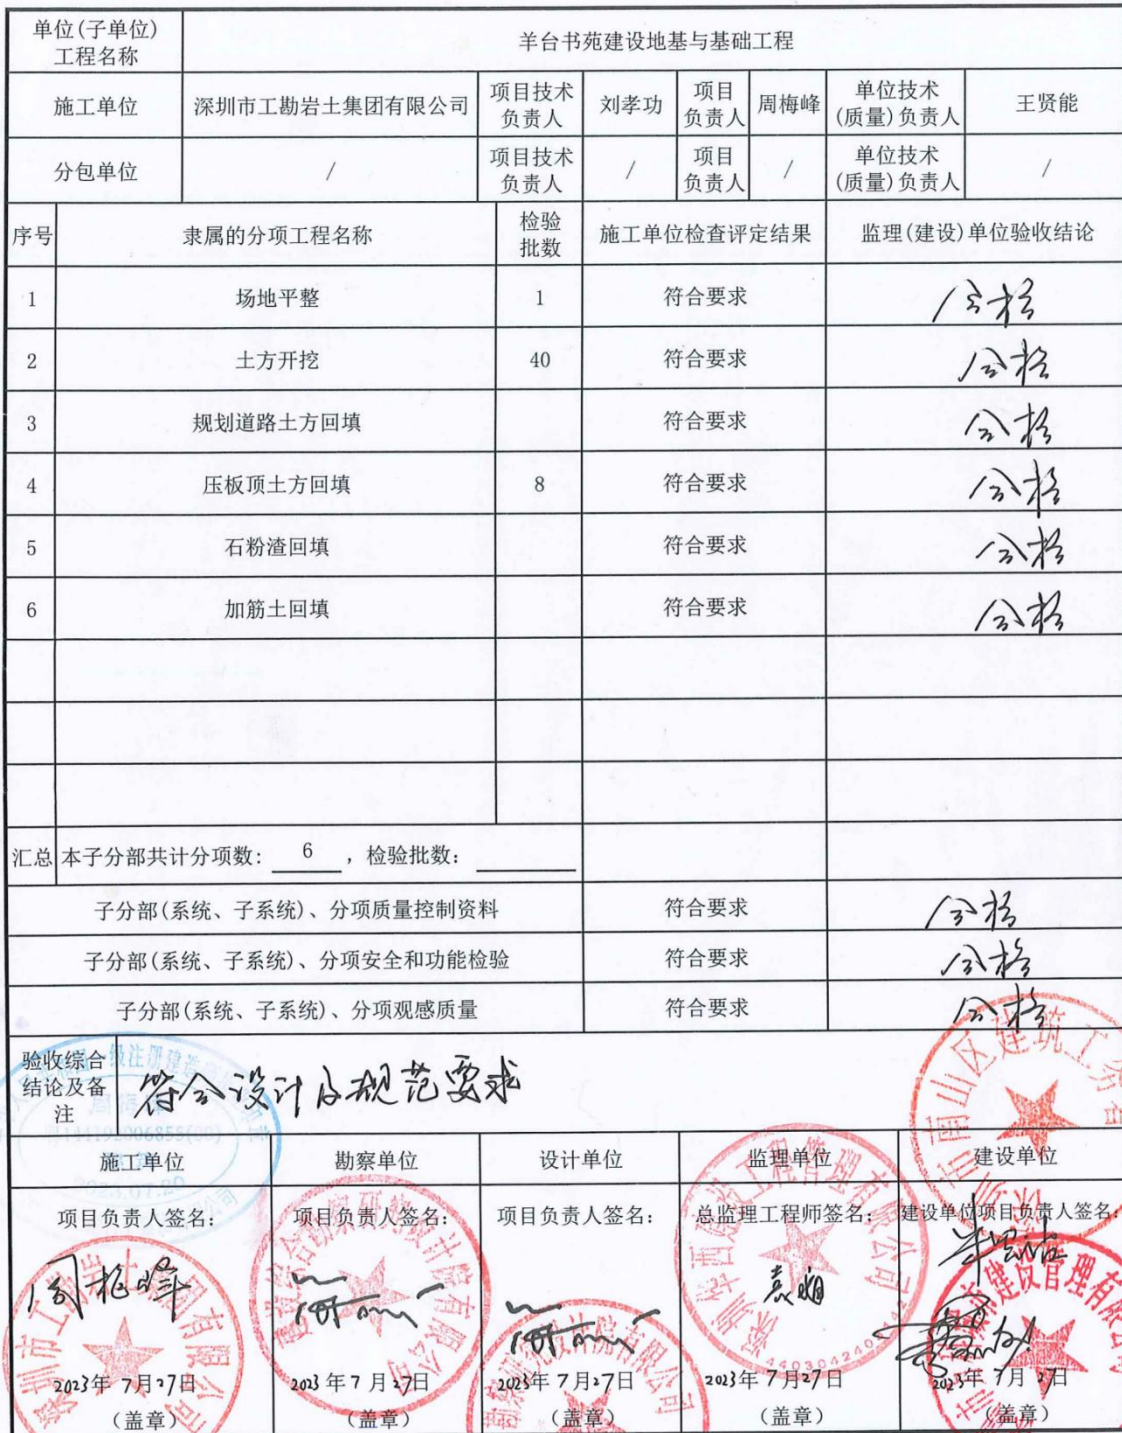 单位(子单位)
工程名称
羊台书苑建设地基与基础工程
施工单位
深圳市工勘岩土集团有限公司
项目技术
负责人
刘孝功
项目
负责人
周梅峰
单位技术
(质量)负责人
王贤能
分包单位
/
项目技术
负责人
/
项目
负责人
/
单位技术
(质量)负责人
/
序号
隶属的分项工程名称
检验
批数
施工单位检查评定结果
监理(建设)单位验收结论
1 场地平整 1 符合要求 合格
2 土方开挖 40 符合要求 合格
3 规划道路土方回填 符合要求 合格
4 压板顶土方回填 8 符合要求 合格
5 石粉渣回填 符合要求 合格
6 加筋土回填 符合要求 合格
汇总 本子分部共计分项数: 6 ,检验批数:
子分部(系统、子系统)、分项质量控制资料 符合要求 合格
子分部(系统、子系统)、分项安全和功能检验 符合要求 合格
子分部(系统、子系统)、分项观感质量 符合要求 合格
验收综合
结论及备
注
符合设计及规范要求
施工单位
勘察单位
设计单位
监理单位
建设单位
项目负责人签名:
项目负责人签名:
项目负责人签名:
总监理工程师签名:
建设单位项目负责人签名:
周梅峰
2023年7月27日
2023年7月27日
2023年7月27日
2023年7月27日
2023年7月27日
(盖章)
(盖章)
(盖章)
(盖章)
(盖章)